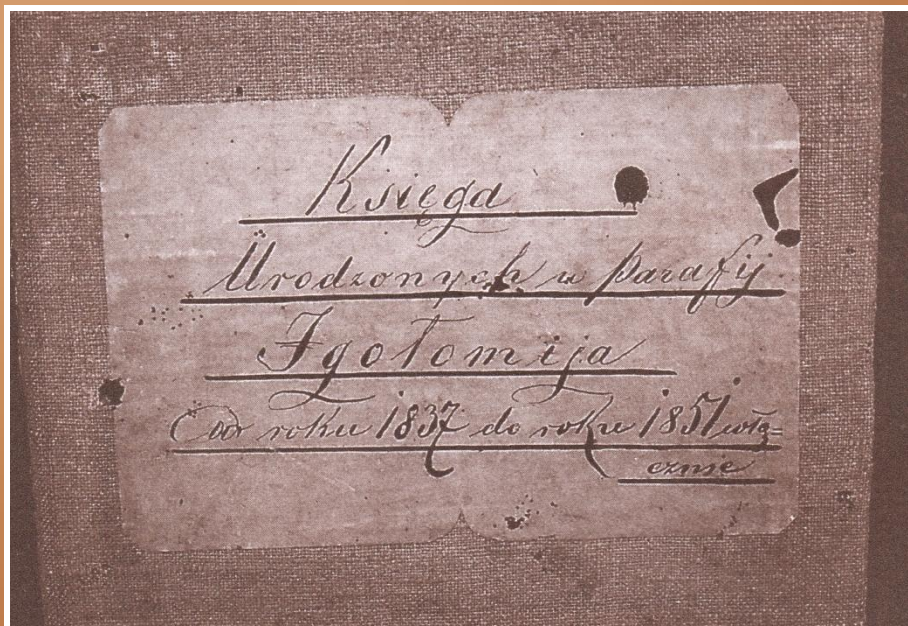 Księga
Urodzonych w parafij
Igołomija
Od roku 1837 do roku 1851 włą=
cznie